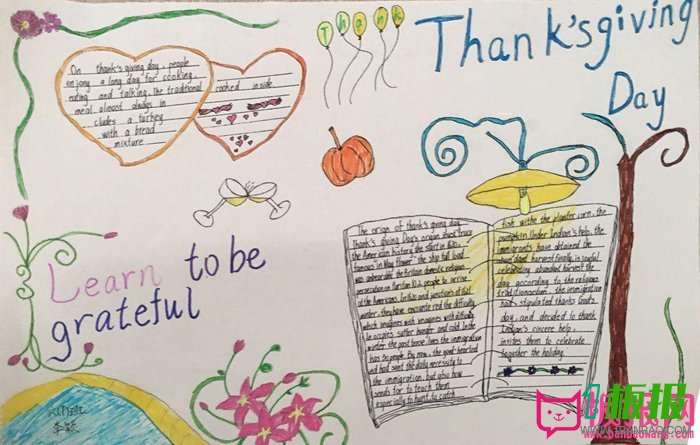 Thank
Thank'sgiving
Day
On thank's giving day, people
enjong a long day for cooking,
eating and talking, the traditional
meal almost always in
cludes a turkey
with a bread
mixture
cooked inside.
Learn to be
grateful
The origin of thank's giving day
Thank's giving Day's origin must trace
the American history the start in 1620,
famous "May flower" the ship full load
was unbearable the Britain domestic religious
persecution on
the Americas. In 1620 and
winter, they have encounte red the difficulty
which imagines with imagines with difficulty
in occupies, suffer hunger and cold. In the
winter the past tense, lives the immigration
has 50 people. By now, the good-hearted
ind had sent the daily necessity to
the immigration, but also how
sends for to teach them
especially to hunt, to catch
fish withe the planter corn, the
pumpkin. Under Indian's help, the
immigrants have obtained the
abundant harvest finally, in joyful
celebrating abundant harvest the
day, according to the religious
tradition, the immigration
had stipulated thanks God's
day, and decided to thank
Indian's sincere help,
invites them to celebrate
together the holiday.
李颖
板报网